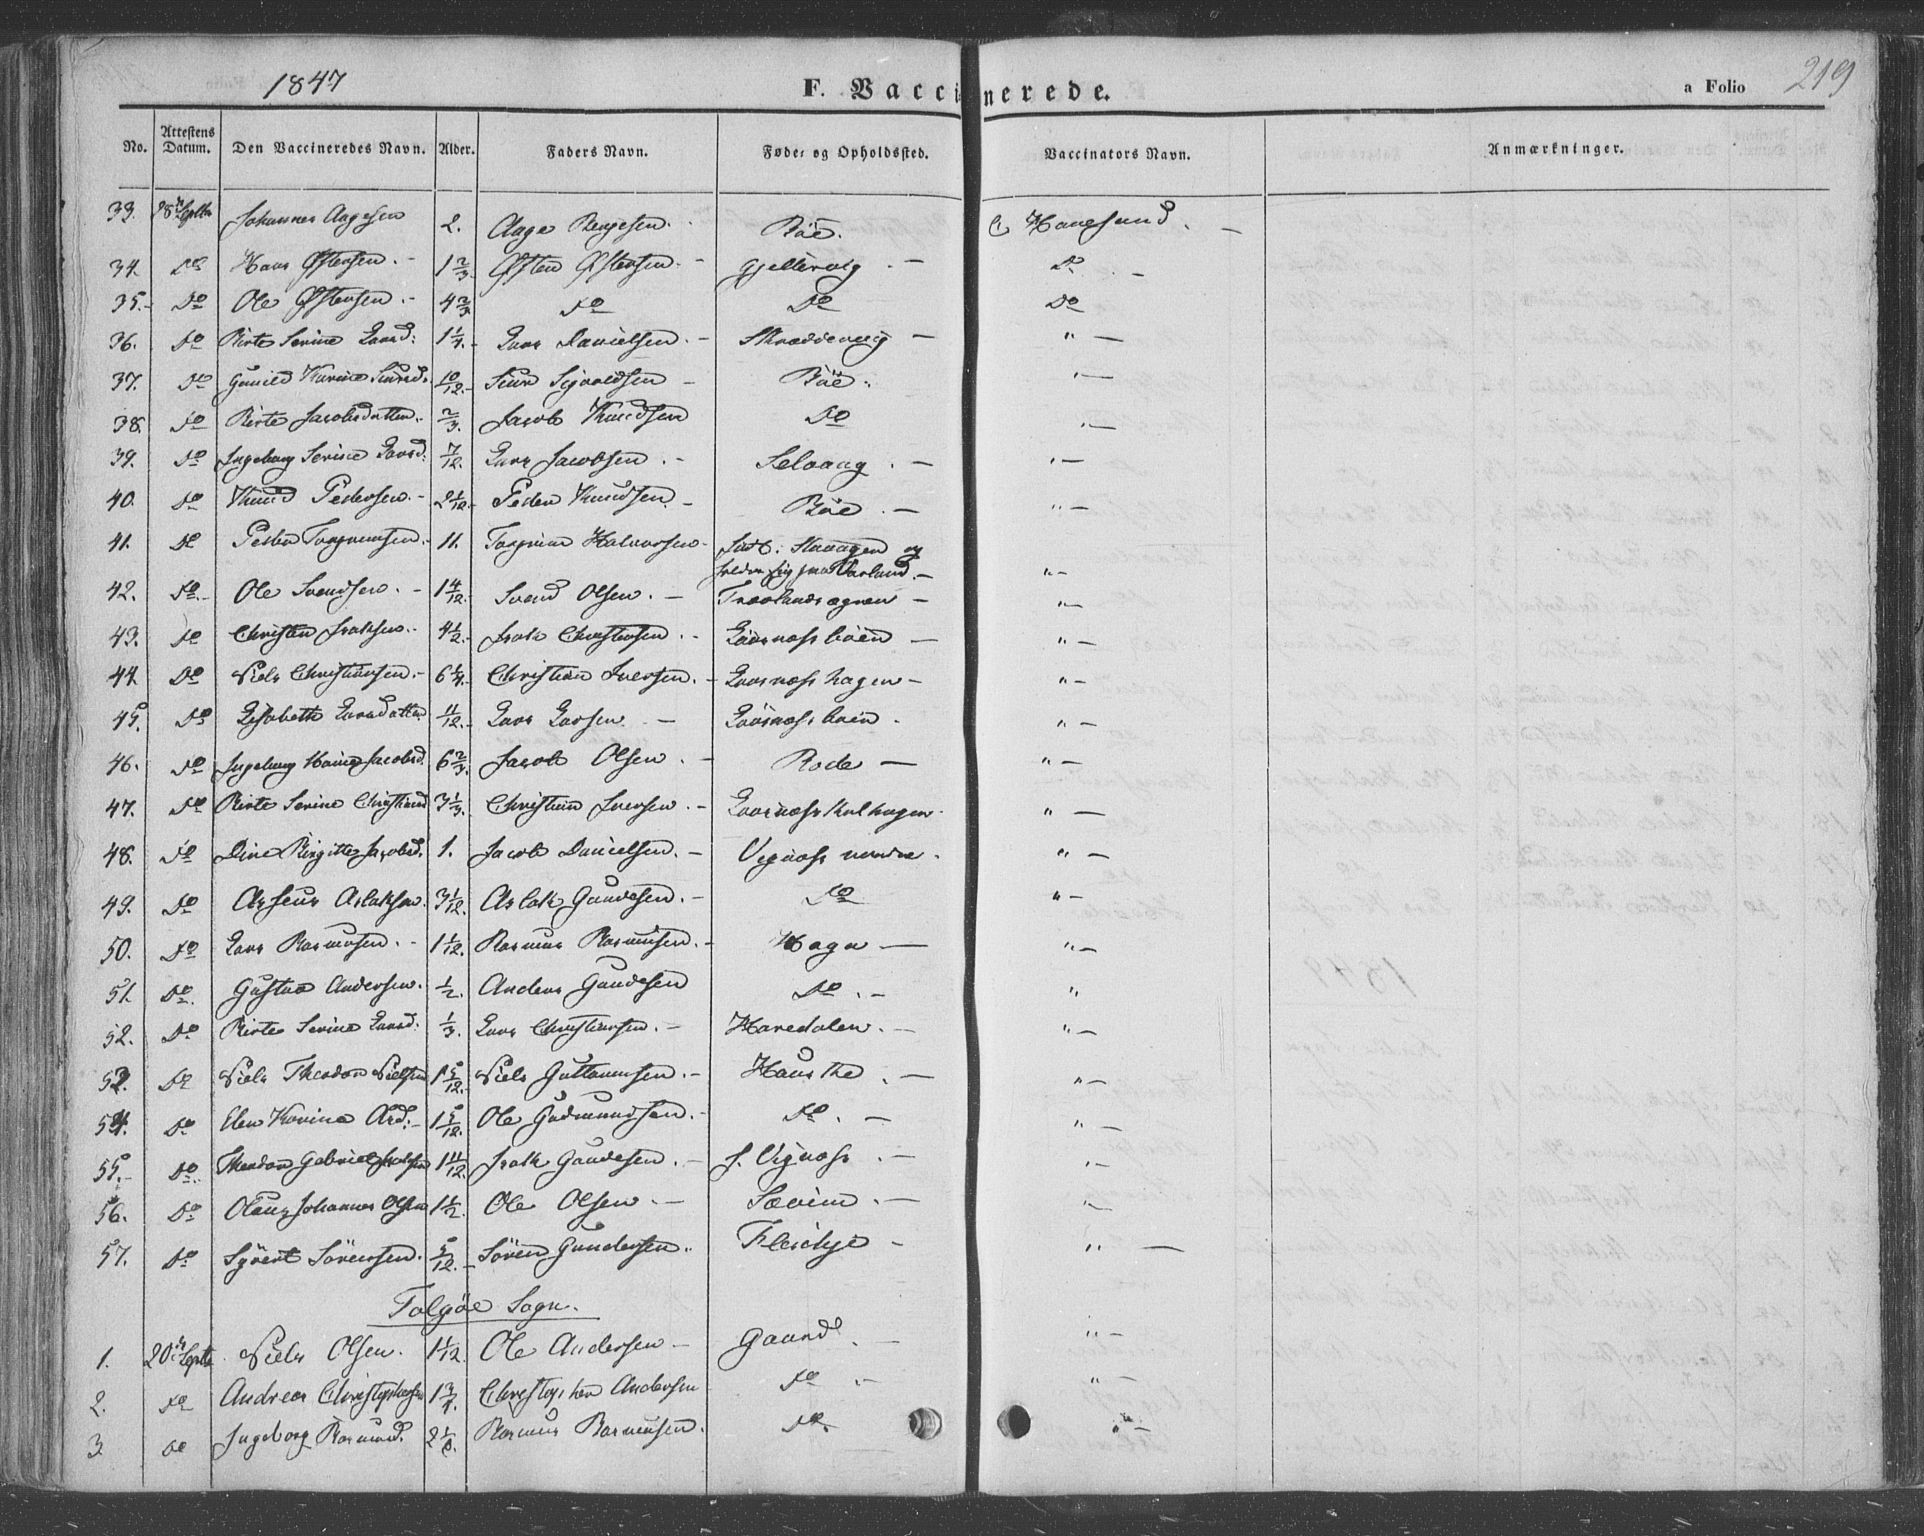 1847 F. Vaccinerede. a Folio 219
No. Attestens Datum. Den Vaccineredes Navn. Alder. Faders Navn. Føde- og Opholdssted. Vaccinators Navn. Anmærkninger.
33. 28de Septbr Johannes Aagesen 2. Aage Bengesen. Böe. C. Hanesund. –
34. Do Hans Østensen. – 1 2/3. Østen Østensen. – Gjeltevig – Do –
35. – Do Ole Østensen. – 4 2/3 Do Do Do
36. Do Birte Serine Larsd: 1 1/4. – Lars Danielsen. – Skreddervig – " –
37. Do Gunild Karine Siursd. 10/12. – Siur Sigvaldsen – Böe. " –
38. Do Birte Jacobsdatter. 2/3. Jacob Knudsen Do " –
39. Do Ingeborg Serine Larsd: 7/12. Lars Jacobsen. – Selvaag. – " –
40. Do Knud Pedersen. – 2 1/12. – Peder Knudsen. – Böe. – " –
41. Do Peder Torgrimsen. – 11. Torgrim Halvorsen – og " –
42. Do – Ole Svendsen. – 1 4/12. Svend Olsen. – – " –
43. Do Christen Isaksen. – 4 1/2. – Isak Christensen. – Laasnæsböen – " –
44. Do Niels Christiansen. – 6 1/4. – Christian Iversen. – Laasnæshagen – " –
45. Do Elisabeth Larsdatter 11/12. – Lars Larsen – Laasnæsböen. " –
46. Do Ingeborg Jacobsd. 6 2/3. Jacob Olsen. – Rode – " –
47. Do Birte Serine Christiansd 3 1/3. Christian Iversen. – " –
48. Do Dine Birgitte Jacobsd. 1. Jacob Danielsen. – Vignæs nedre. " –
49. Do Aslaksen. 3 1/12. Aslak Gundesen. – Do " –
50. Do Lars Rasmusen. – 1 1/12. Rasmus Rasmusen. – Hagn – " –
51. Do. Gustav Andersen. 1/2. Anders Gundesen Do. – "
52. Do Birte Serine Larsd. 1/3. Lars Christiansen. – Havedalen. – " –
53. Do Niels Theodor Nielsen 1 5/12. Niels Guttormsen. – Haustke. – " –
54. Do Elen Karine Olsd. – 1 5/12. Ole Gudmundsen. – Do. – " –
55. – Do. Theodor Gabriel Isaksen 1 11/12. Isak Gundesen. – s. Vignæs. – " –
56. Do Olaus Johannes Olsen 1 1/2. Ole Olsen. – Sævim. – " –
57. Do Syvert Sörensen. 5/12. – Sören Gundersen. Fleidye – " –
Falgöe Sogn.
1. 20de Septbr. Niels Olsen. 1 1/12. Ole Andersen – Gaard. – " –
2. Do Andreas Christophersen 1 3/4. Christopher Andersen Do – " –
3. Do Ingeborg Rasmusd. 2 1/8. Rasmus Rasmusen. Do. " –